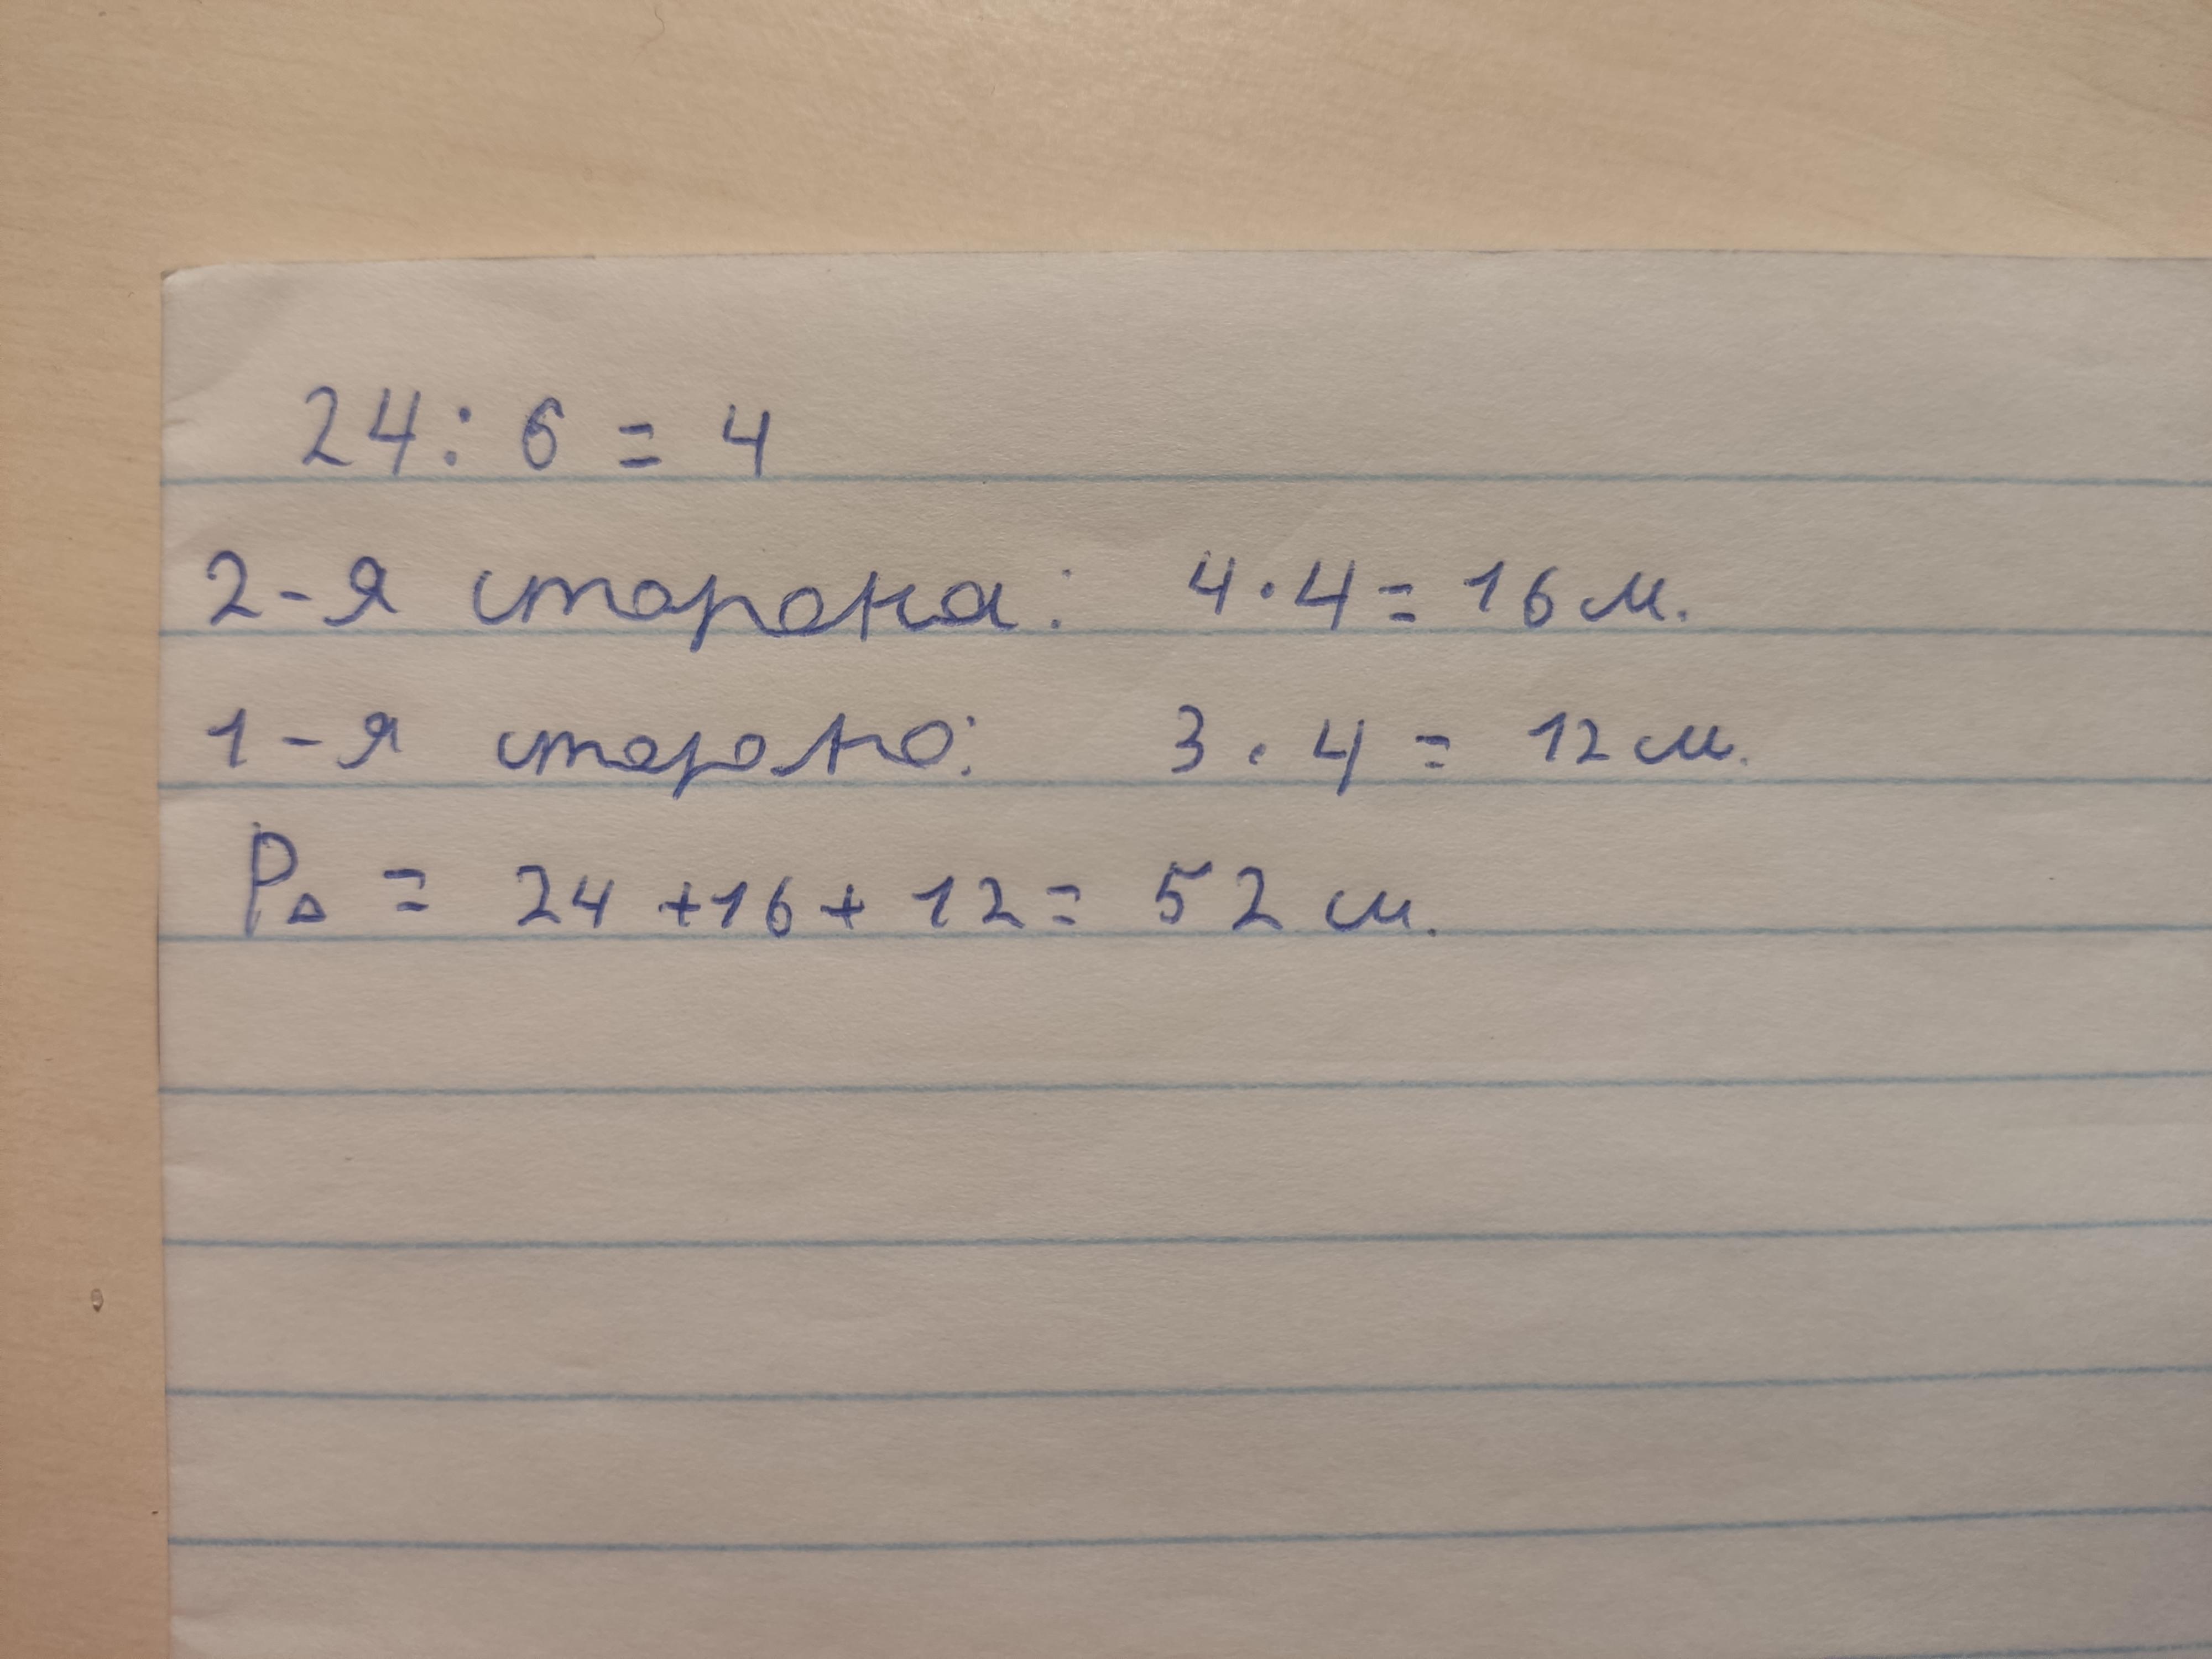 24 : 6 = 4
2-я сторона: 4 · 4 = 16 м.
1-я сторона: 3 · 4 = 12 м.
P△ = 24 + 16 + 12 = 52 м.